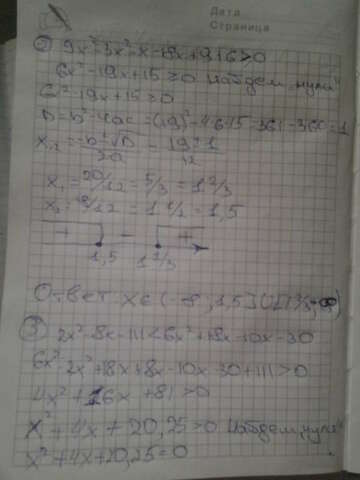 Дата
Страница
② 9x²-3x²-x-18x+9+6≥0
6x²-19x+15≥0 Найдем „нули"
6x²-19x+15=0
D=b²-4ac=(19)²-4·6·15=361-360=1
x₁,₂=-b±√D/2a = 19±1/12
x₁=20/12=5/3=1 2/3
x₂=18/12=1 1/2=1,5
+ - +
1,5 1 2/3
Ответ x∈(-∞;1,5]U[1⅔;∞)
③ 2x²-8x-111<6x²+8x-10x-30
6x²-2x²+8x+8x-10x-30+111>0
4x²+16x+81>0
x²+4x+20,25>0 Найдем „нули"
x²+4x+20,25=0